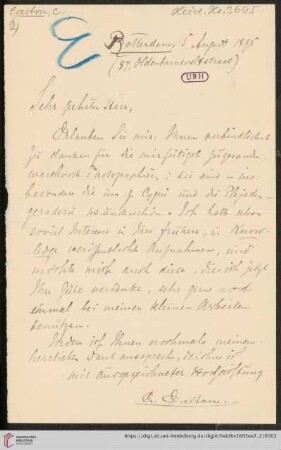 Easton, C.
Heid. Hs. 3695
2
E
Rotterdam, 5 August 1895
(37, Oldenbarneveltstraat)
UBH
Sehr geehrter Herr,
Erlauben Sie mir, Ihnen verbindlichst
zu danken für die
die um γ Cygni und die Plejaden-
Ich hatte schon
soviel Interesse in den früher, in Know-
ledge veröffentlichte Aufnahmen, und
möchte mich auch diese, die ich jetzt
Ihr Güte verdanke, sehr gern noch
einmal bei meinen kleinen Arbeiten
benützen.
Indem ich Ihnen nochmals meinen
herzlichen Dank ausspreche, zeichne ich
mit ausgezeichneter Hochachtung
C. Easton.
UNIVERSITÄTS-
BIBLIOTHEK
HEIDELBERG